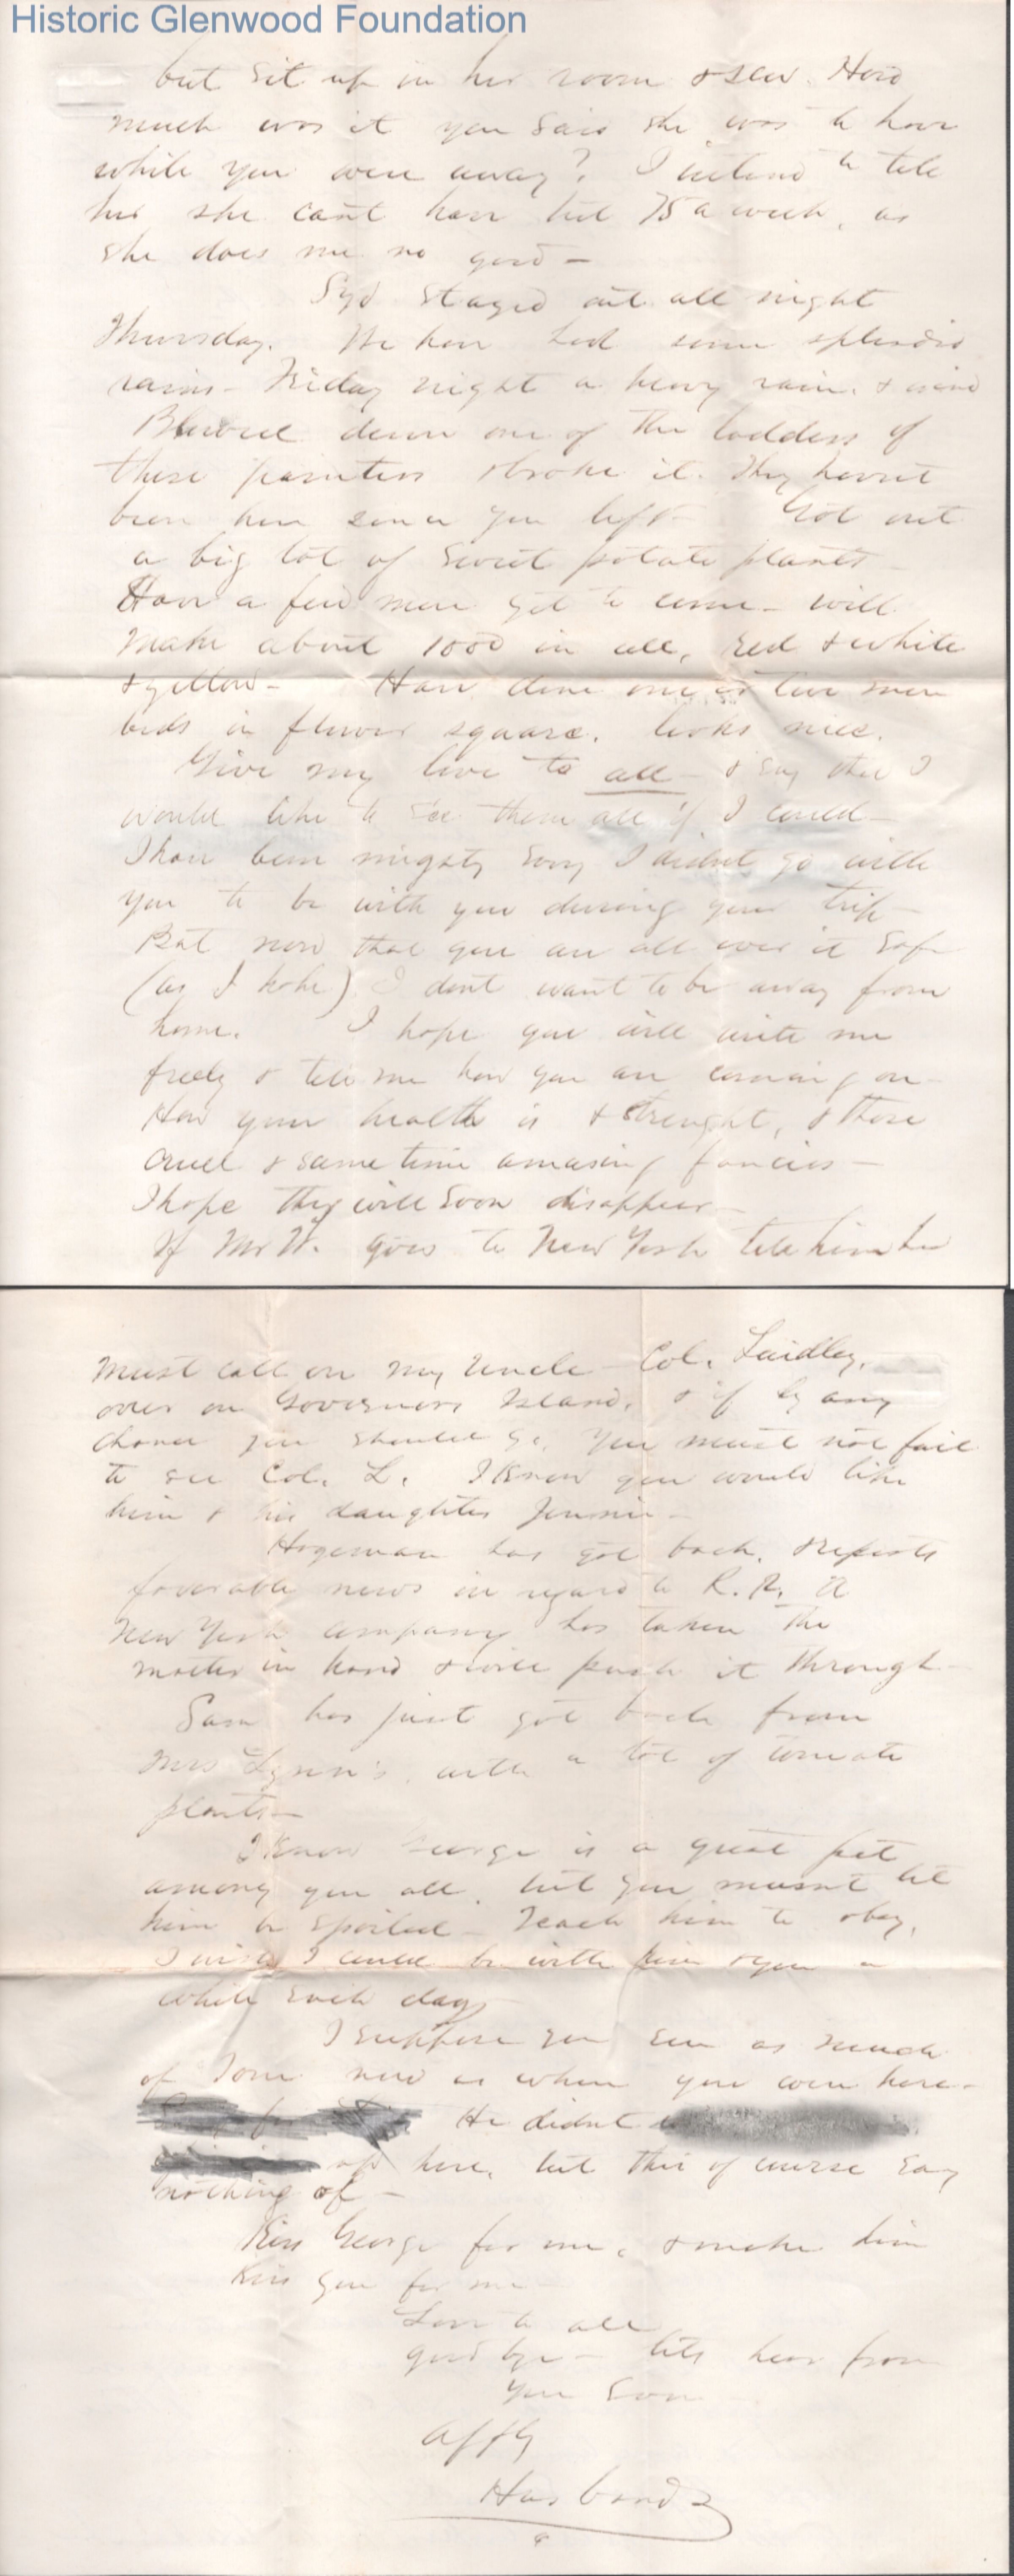 Historic Glenwood Foundation
but sit up in her room & sew. How
much was it you said she was to have
while you were away? I intend to tell
her she cant have but 75 a week, as
she does me no good —
Syd stayed out all night
Thursday. We have had some splendid
rains — Friday night a heavy rain & wind
Blowed down one of the ladders of
these painters & broke it. They havent
been here since you left — Got out
a big lot of sweet potato plants —
Have a few more yet to come — will
make about 1000 in all, red & white
& yellow — Have done one or two more
beds in flower square. looks nice.
Give my love to all — & say that I
would like to see them all if I could —
I have been mighty sorry I didnt go with
you to be with you during your trip —
But now that you are all over it safe
(as I hope) I dont want to be away from
home. I hope you will write me
freely & tell me how you are coming on —
How your health is & strenght, & those
cruel & same time amusing fancies —
I hope they will soon disappear —
If Mr W. goes to New York tell him he
must call on my Uncle Col. Laidley,
over on Governors Island, & if by any
chance you should go, you must not fail
to see Col. L. I know you would like
him & his daughter Jennie —
Hogeman has got back, & reports
favorable news in regard to R.R. A
New York company has taken the
matter in hand & will push it through —
Sam has just got back from
Mrs Lynn's, with a lot of tomato
plants —
I know George is a great pet
among you all, but you mussnt let
him be spoiled — Teach him to obey,
I wish I could be with him & you a
while each day
I suppose you see as much
of Tom now as when you were here —
He didnt
up here, but this of course say
nothing of —
Kiss George for me, & make him
kiss you for me —
Love to all
good bye — lets hear from
you soon
affly
Husband